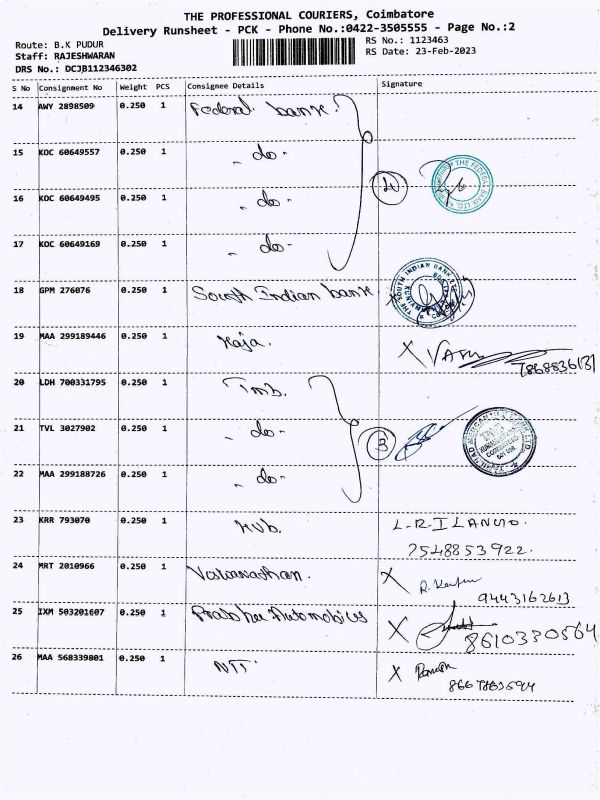 THE PROFESSIONAL COURIERS, Coimbatore
Delivery Runsheet - PCK - Phone No.:0422-3505555 - Page No.:2
Route: B.K PUDUR
RS No.: 1123463
Staff: RAJESHWARAN
RS Date: 23-Feb-2023
DRS No.: DCJB112346302
S No Consignment No Weight PCS Consignee Details Signature
14 AWY 2898509 0.250 1 Federal bank
15 KOC 60649557 0.250 1 - do -
16 KOC 60649495 0.250 1 - do - 4
17 KOC 60649169 0.250 1 - do -
18 GPM 276076 0.250 1 South Indian bank
19 MAA 299189446 0.250 1 Kaja. X
20 LDH 700331795 0.250 1 Tmb.
21 TVL 3027902 0.250 1 - do - 3
22 MAA 299188726 0.250 1 - do -
23 KRR 793070 0.250 1 KVB.
7548853922.
24 MRT 2010966 0.250 1 X
9443162613
25 IXM 503201607 0.250 1 Prabhu Automobiles X
8610330564
26 MAA 568339801 0.250 1 NTT X Ramesh